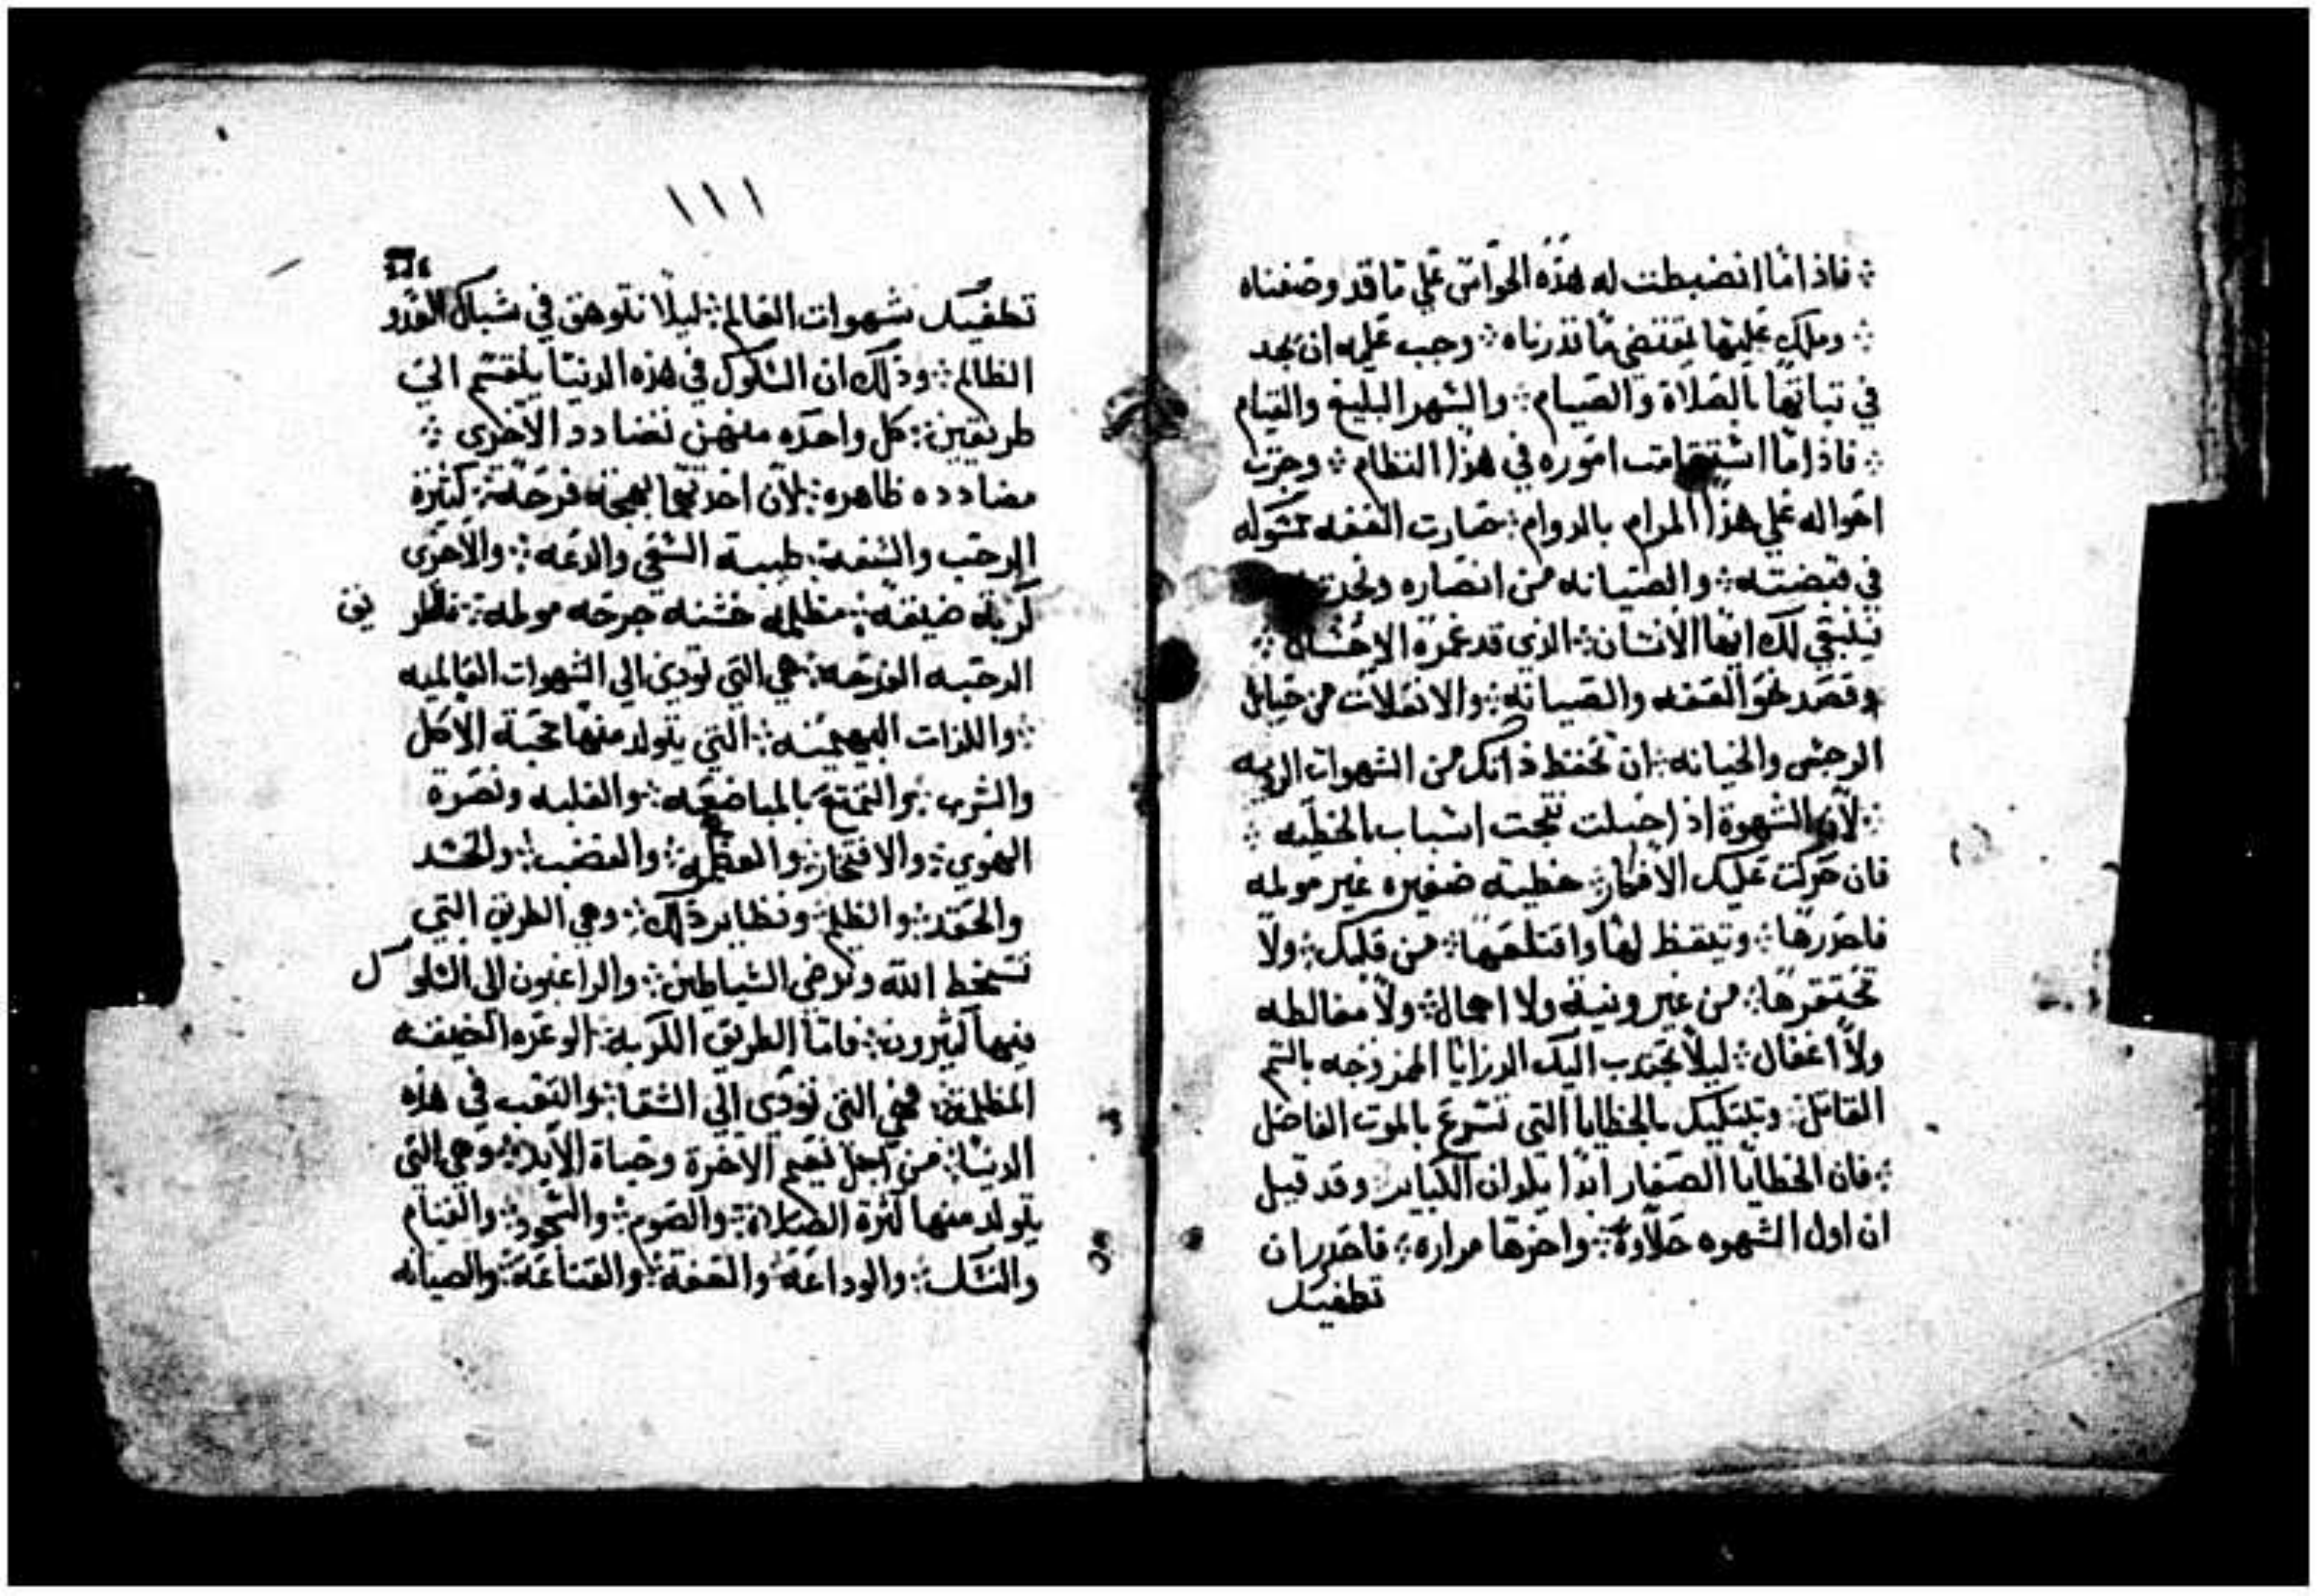 ؞ فاذا ما انضبطت له هذه الحواس علي ما قد وصفناه
؞ وملك عليها بمقتضي ما نذرناه ؞ وجب عليه ان يجد
في تباتها بالصلاة والصيام ؞ والسهر البليغ والقيام
؞ فاذا ما استقامت اموره في هذا النظام ؞ وجرت
احواله علي هذا المرام بالدوام ؞ صارت العفه ممسوكه
في قبضته ؞ والصيانه من انصاره
فينبغي لك ايها الانسان ؞ الذي قد غمره الاحسان ؞
وقصد نحو العفه والصيانه ؞ والانفلات من حبايل
الرجس والخيانه ؞ ان تحفظ ذاتك من الشهوات الرديه
؞ لان الشهوة اذا حبلت نتجت اسباب الخطيه ؞
فان حركت عليك الافكار ؞ خطية صغيره غير مولمه
فاحذرها ؞ وتيقظ لها واقتلعها ؞ من قلبك ؞ ولا
تحتقرها ؞ من غير ونية ولا اهمال ؞ ولا مغالطه
ولا اغفال ؞ ليلا تجتدب اليك الرزايا الممزوجه بالسم
القاتل ؞ وتبتليك بالخطايا التي تسرع بالموت الفاصل
؞ فان الخطايا الصغار ابدا يلدان الكباير ؞ وقد قيل
ان اول الشهوه حلاوة ؞ واخرها مراره ؞ فاحدر ان
تطغيك
١١١
تطغيك شهوات العالم ؞ ليلا تتوهق في شباك العدو
الظالم ؞ وذلك ان السلوك في هذه الدنيا ينقسم الي
طريقين ؞ كل واحده منهن تضادد الاخرى ؞
مضادده ظاهره ؞ لان احدتهما بهجة فرحة ؞ كثيرة
الرحب والسعة ؞ طيبة السقي والدعه ؞ والاخرى
كربه ضيقه ؞ مظلمه خشنه جرحه مولمه ؞ فالطر يق
الرحبه الفرحه ؞ هي التي تودي الي الشهوات العالميه
؞ واللذات البهيميه ؞ التي يتولد منها محبة الاكل
والشرب ؞ والتمتع بالمباضعه ؞ والغلبه ونصرة
الهوي ؞ والافتخار ؞ والعظمه ؞ والغضب ؞ والحسد
والحقد ؞ والظلم ؞ ونظاير ذلك ؞ وهي الطريق التي
تسخط الله وترضي الشياطين ؞ والراغبون الى السلو ك
فيها كثيرون ؞ فاما الطريق الكربة ؞ الوعره الضيقه
المظلمة ؞ فهي التي تودي الي الشقا ؞ والتعب في هذه
الدنيا ؞ من اجل نعيم الاخرة وحياة الابد ؞ وهي التي
يتولد منها كثرة الصلاة ؞ والصوم ؞ والسجود ؞ والقيام
والنسك ؞ والوداعة والعفة ؞ والقناعة ؞ والصيانه